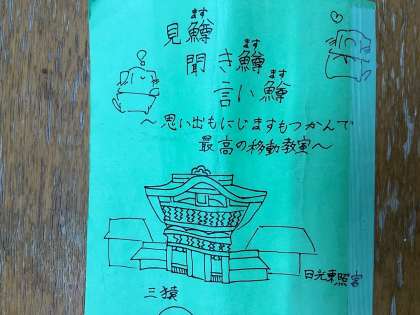 見鱒
ます
聞き鱒
ます
言い鱒
ます
～思い出もにじますもつかんで
最高の移動教室～
日光東照宮
三猿